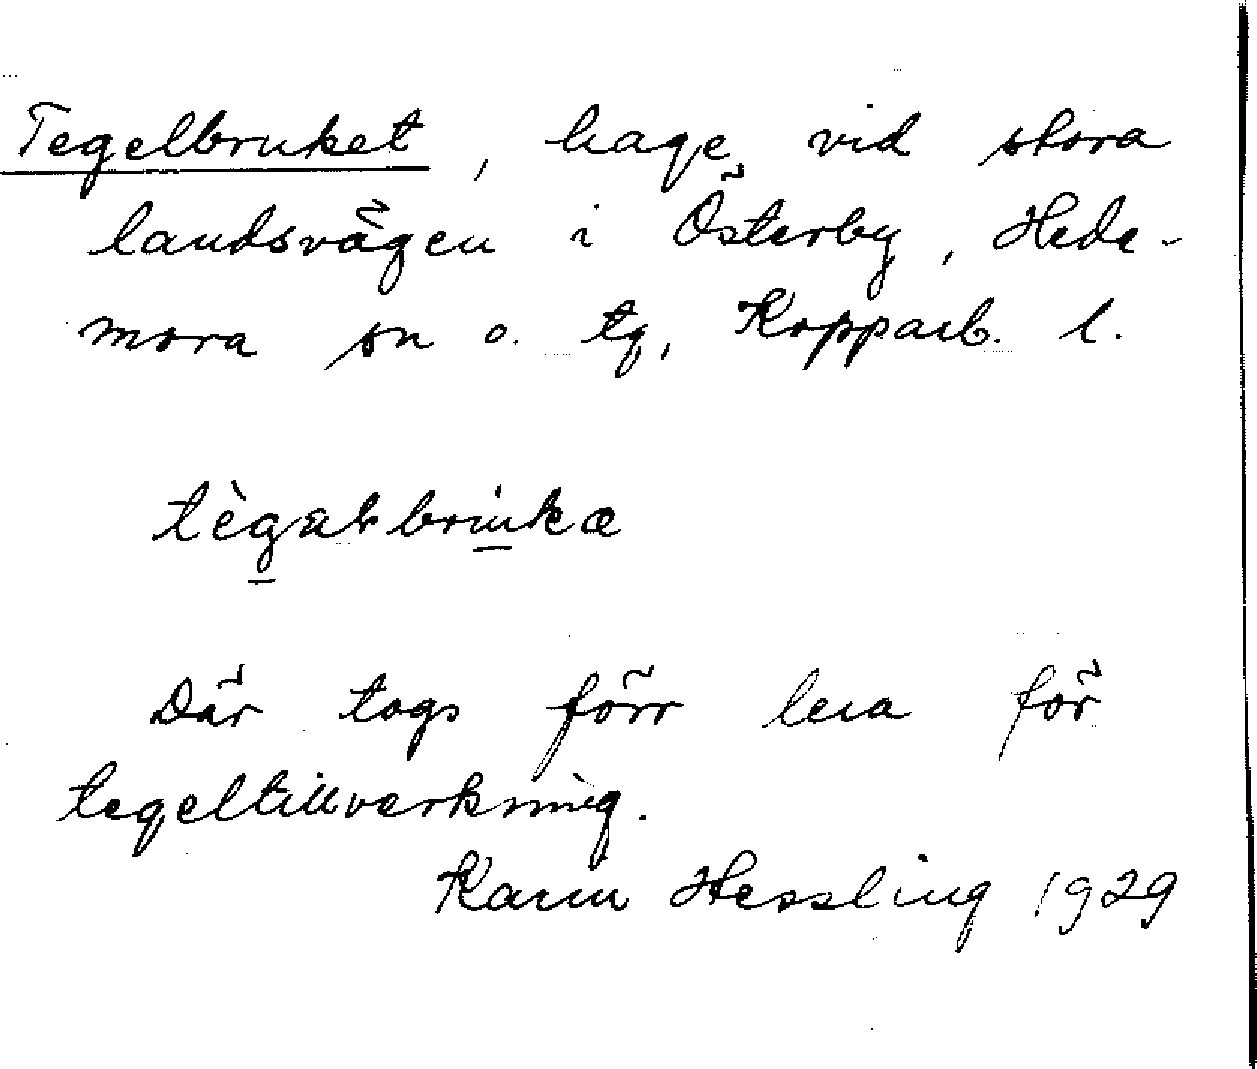 Tegelbruket, hage vid stora
landsvägen i Österby, Hede-
mora sn o. tg, Kopparb. l.
Där togs förr lera för
tegeltillverkning.
Karin Hessling 1929